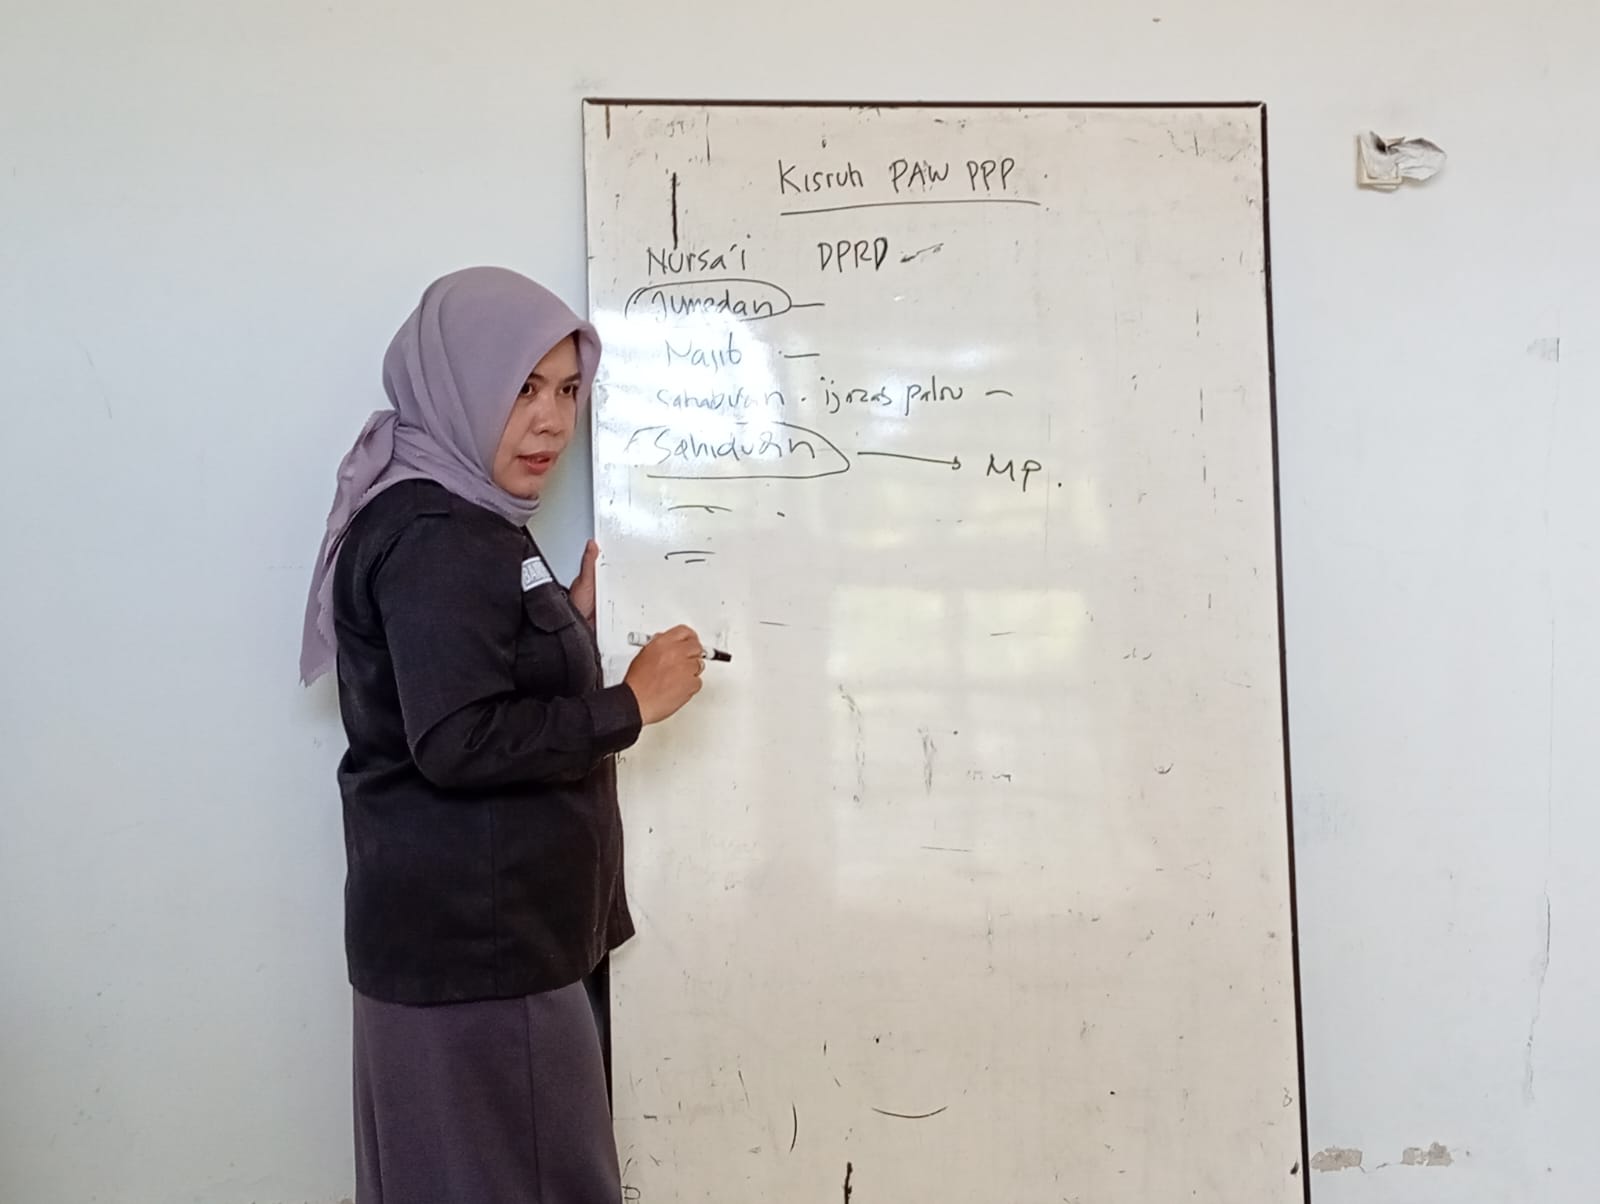 Kisruh PAW PPP
Nursa'i DPRD
Jumadan
Najib
Sahabuan . ijazah palsu
Sahiduan MP.
BAW